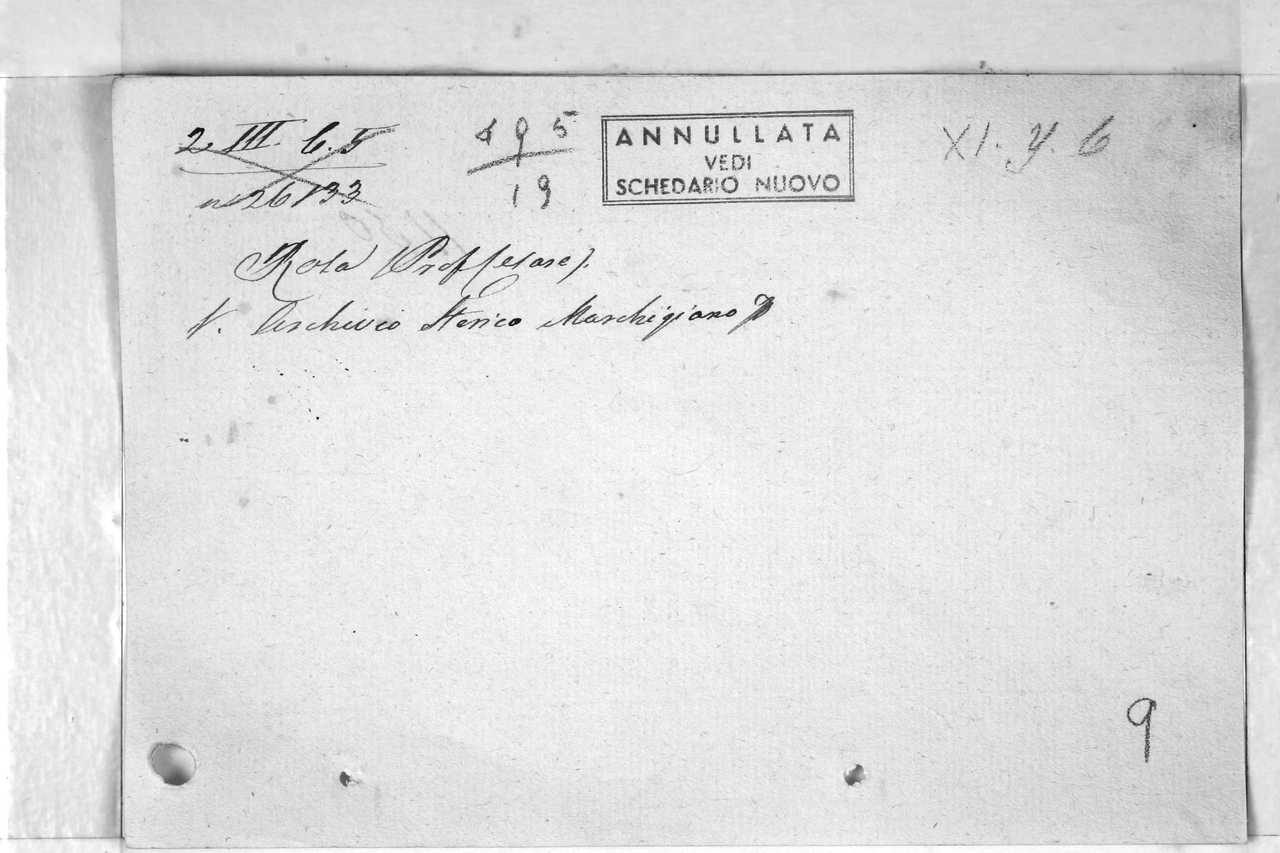 2. III C. 5
495
19
ANNULLATA
VEDI
SCHEDARIO NUOVO
XI. y. 6
n 26133
Rosa (Prof Cesare).
V. Archivio Storico Marchigiano
9